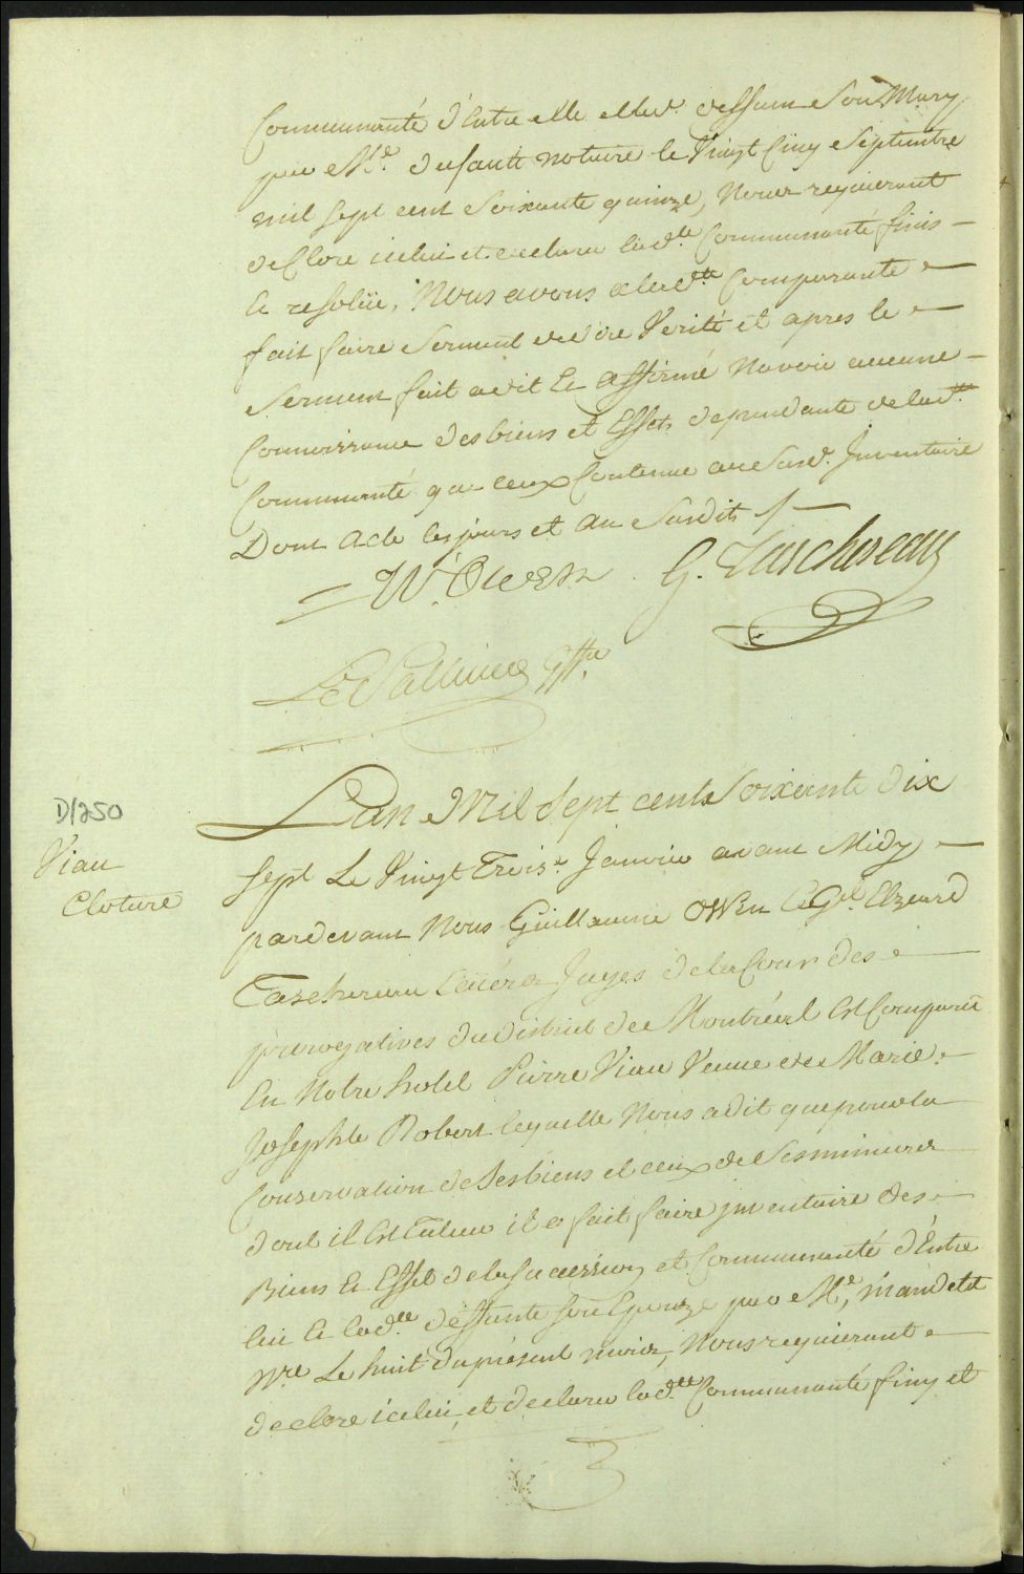 Communauté d'Entre elle et led.t deffunt Son Mary
par M.e defautt notaire le Vingt Cinq Septembre
mil Sept cent Soixante quinze, Nous requierant
de Clore icelui et declarer lad.te Communauté finis –
Et resolüe, Nous avons a lad.tte Comparante –
fait faire Serment de dire Verité et apres le –
Serment fait a dit Et affirmé N'avoir aucune –
Connoissance des biens et Effets dependante de lad.tte
Communauté que ceux Contenue au Susd.t Inventaire
Dont Acte les jours et an Susdits /–
W. Owen G. Taschereau
Le Pallieur Gffr.
D1250
Viau
Cloture
L'an Mil Sept cents Soixante dix
Sept Le Vingt Trois.e Janvier avant Midy –
pardevant Nous Guillaume OWen Et G.el Elzeard
Taschereau Ecuiers Juges de la Cour des –
prerogatives du district de Montréal Est Comparu
En Notre hotel Pierre Viau Veuve de Marie –
Josephte Robert lequelle Nous a dit que pour la
Conservation de Ses biens et ceux de Ses mineures
dont il Est Tuteur il a fait faire inventaire des –
Biens Et Effet de la Succession et Communauté d'Entre
lui Et lad.te deffunte Son Epouze par M.e, Mandetet
N.re Le huit du présent mois, Nous requierant –
de clore icelui, et declarer lad.tte Communauté finy et